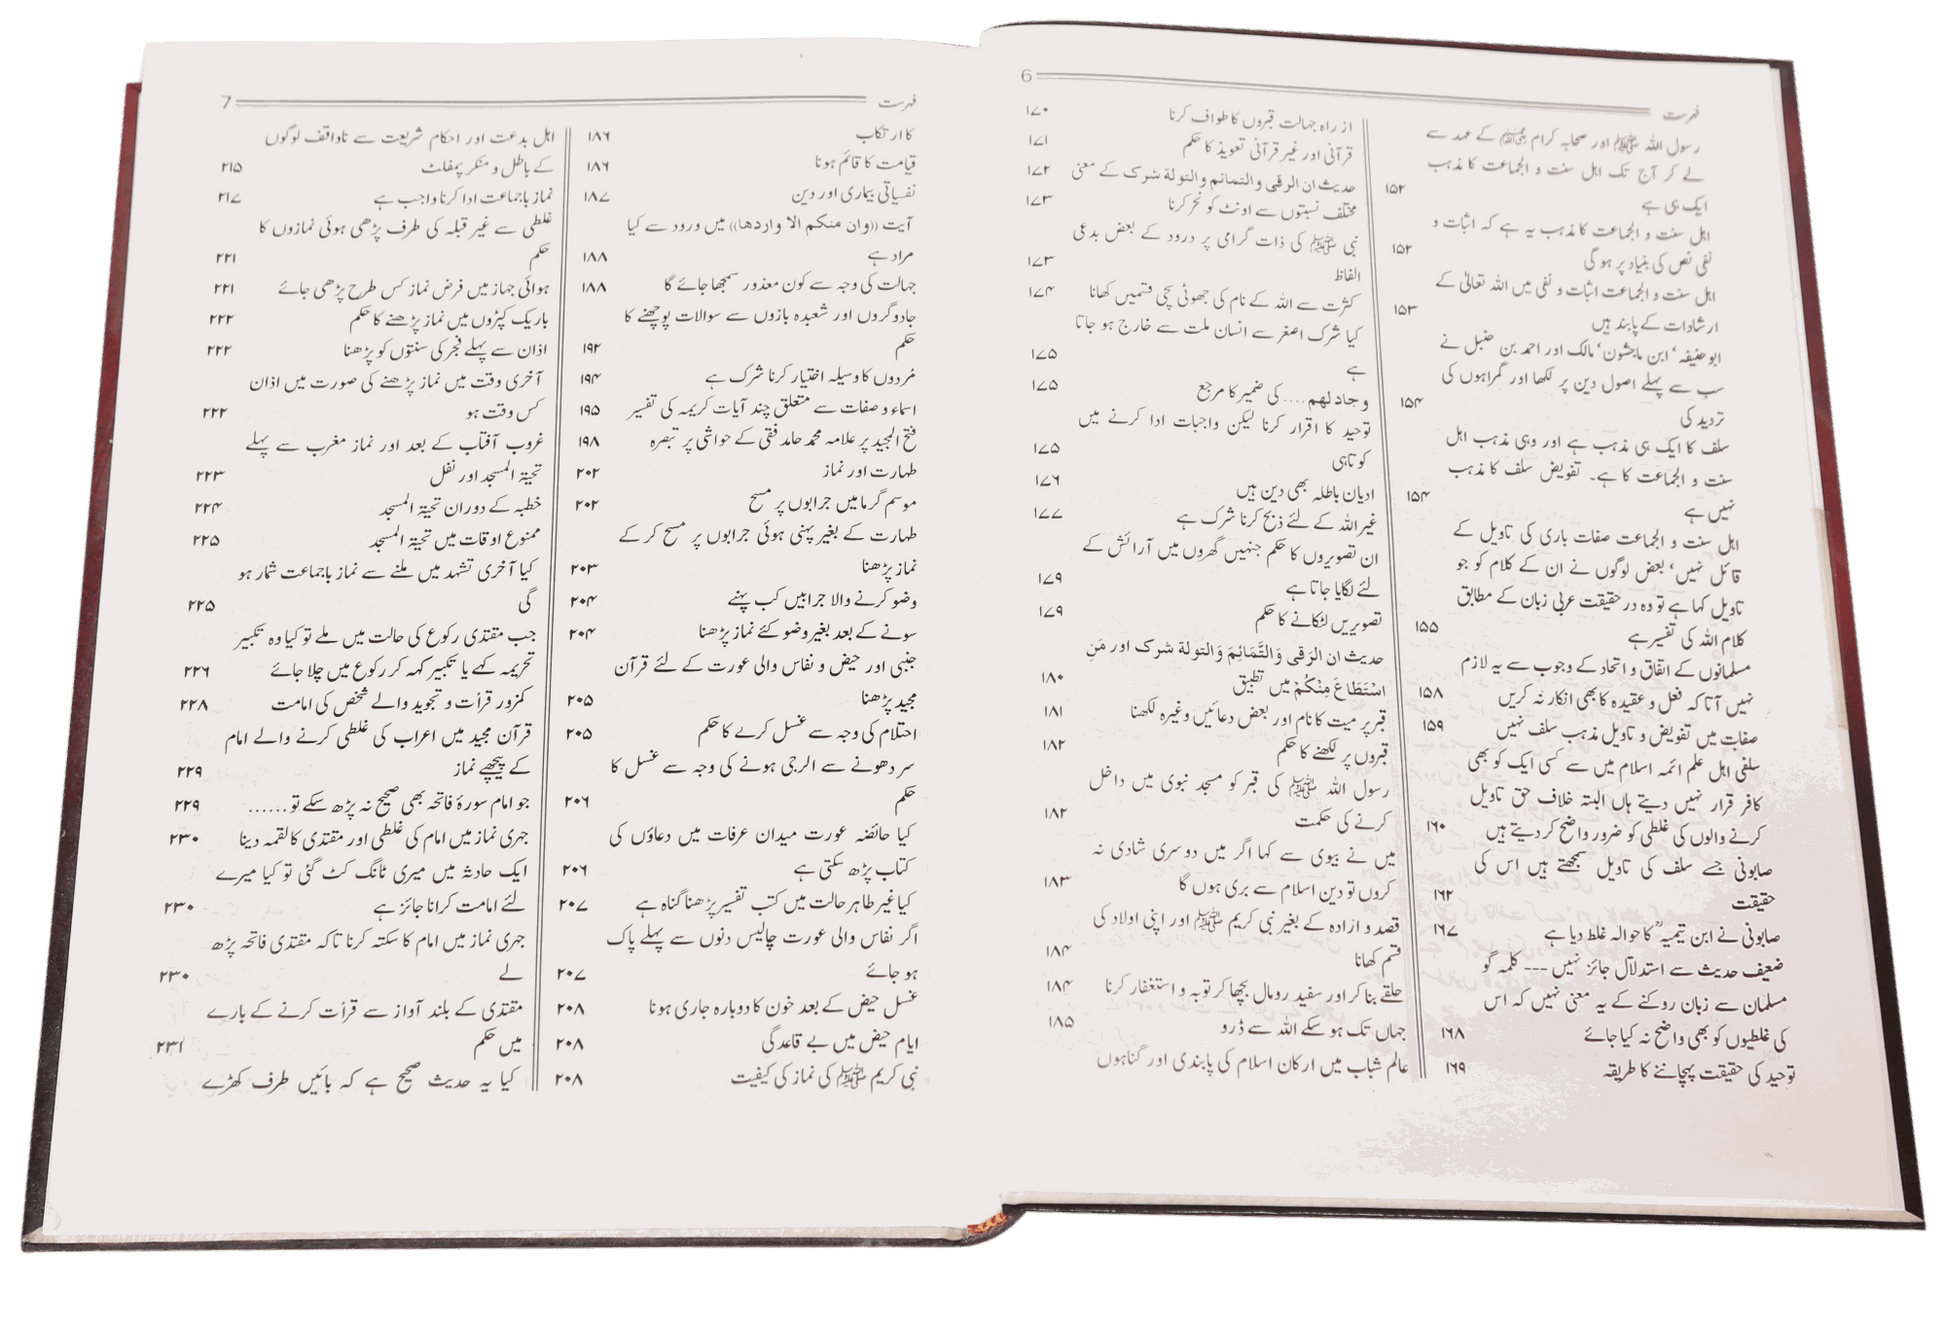 6
فہرست
رسول اللہ ﷺ اور صحابہ کرام ﷢ کے عہد سے
لے کر آج تک اہل سنت و الجماعت کا مذہب
ایک ہی ہے ۱۵۲
اہل سنت و الجماعت کا مذہب یہ ہے کہ اثبات و
نفی نص کی بنیاد پر ہو گی ۱۵۲
اہل سنت و الجماعت اثبات و نفی میں اللہ تعالیٰ کے
ارشادات کے پابند ہیں ۱۵۳
ابو حنیفہ‘ ابن ماجشون‘ مالک اور احمد بن حنبل نے
سب سے پہلے اصول دین پر لکھا اور گمراہوں کی
تردید کی ۱۵۴
سلف کا ایک ہی مذہب ہے اور وہی مذہب اہل
سنت و الجماعت کا ہے۔ تفویض سلف کا مذہب
نہیں ہے ۱۵۴
اہل سنت و الجماعت صفات باری کی تاویل کے
قائل نہیں‘ بعض لوگوں نے ان کے کلام کو جو
تاویل کہا ہے تو وہ در حقیقت عربی زبان کے مطابق
کلام اللہ کی تفسیر ہے ۱۵۵
مسلمانوں کے اتفاق و اتحاد کے وجوب سے یہ لازم
نہیں آتا کہ فعل و عقیدہ کا بھی انکار نہ کریں ۱۵۸
صفات میں تفویض و تاویل مذہب سلف نہیں ۱۵۹
سلفی اہل علم ائمہ اسلام میں سے کسی ایک کو بھی
کافر قرار نہیں دیتے ہاں البتہ خلاف حق تاویل
کرنے والوں کی غلطی کو ضرور واضح کر دیتے ہیں ۱۶۰
صابونی جسے سلف کی تاویل سمجھتے ہیں اس کی
حقیقت ۱۶۲
صابونی نے ابن تیمیہؒ کا حوالہ غلط دیا ہے ۱۶۷
ضعیف حدیث سے استدلال جائز نہیں --- کلمہ گو
مسلمان سے زبان روکنے کے یہ معنی نہیں کہ اس
کی غلطیوں کو بھی واضح نہ کیا جائے ۱۶۸
توحید کی حقیقت پہچاننے کا طریقہ ۱۶۹
از راہ جہالت قبروں کا طواف کرنا ۱۷۰
قرآنی اور غیر قرآنی تعویذ کا حکم ۱۷۱
حدیث ان الرقی والتمائم والتولة شرک کے معنی ۱۷۲
مختلف نسبتوں سے اونٹ کو نحر کرنا ۱۷۳
نبی ﷺ کی ذات گرامی پر درود کے بعض بدعی
الفاظ ۱۷۳
کثرت سے اللہ کے نام کی جھوٹی سچی قسمیں کھانا ۱۷۴
کیا شرک اصغر سے انسان ملت سے خارج ہو جاتا
ہے ۱۷۵
وجاد لھم.... کی ضمیر کا مرجع ۱۷۵
توحید کا اقرار کرنا لیکن واجبات ادا کرنے میں
کوتاہی ۱۷۵
ادیان باطلہ بھی دین ہیں ۱۷۶
غیر اللہ کے لئے ذبح کرنا شرک ہے ۱۷۷
ان تصویروں کا حکم جنہیں گھروں میں آرائش کے
لئے لگایا جاتا ہے ۱۷۹
تصویریں لٹکانے کا حکم ۱۷۹
حدیث ان الرَقی وَالتَّمَائِمَ وَالتولة شرک اور مَنِ
اسْتَطَاعَ مِنْكُمْ میں تطبیق ۱۸۰
قبر پر میت کا نام اور بعض دعائیں وغیرہ لکھنا ۱۸۱
قبروں پر لکھنے کا حکم ۱۸۲
رسول اللہ ﷺ کی قبر کو مسجد نبوی میں داخل
کرنے کی حکمت ۱۸۲
میں نے بیوی سے کہا اگر میں دوسری شادی نہ
کروں تو دین اسلام سے بری ہوں گا ۱۸۳
قصد و ارادہ کے بغیر نبی کریم ﷺ اور اپنی اولاد کی
قسم کھانا ۱۸۴
حلقے بنا کر اور سفید رومال بچھا کر توبہ و استغفار کرنا ۱۸۴
جہاں تک ہو سکے اللہ سے ڈرو ۱۸۵
عالم شباب میں ارکان اسلام کی پابندی اور گناہوں
7
فہرست
کا ارتکاب ۱۸۶
قیامت کا قائم ہونا ۱۸۶
نفسیاتی بیماری اور دین ۱۸۷
آیت ((وان منکم الا واردھا)) میں ورود سے کیا
مراد ہے ۱۸۸
جہالت کی وجہ سے کون معذور سمجھا جائے گا ۱۸۸
جادوگروں اور شعبدہ بازوں سے سوالات پوچھنے کا
حکم ۱۹۲
مُردوں کا وسیلہ اختیار کرنا شرک ہے ۱۹۴
اسماء و صفات سے متعلق چند آیات کریمہ کی تفسیر ۱۹۵
فتح المجید پر علامہ محمد حامد فقی کے حواشی پر تبصرہ ۱۹۸
طہارت اور نماز ۲۰۲
موسم گرما میں جرابوں پر مسح ۲۰۲
طہارت کے بغیر پہنی ہوئی جرابوں پر مسح کر کے
نماز پڑھنا ۲۰۳
وضو کرنے والا جرابیں کب پہنے ۲۰۴
سونے کے بعد بغیر وضو کئے نماز پڑھنا ۲۰۴
جنبی اور حیض و نفاس والی عورت کے لئے قرآن
مجید پڑھنا ۲۰۵
احتلام کی وجہ سے غسل کرلے کا حکم ۲۰۵
سر دھونے سے الرجی ہونے کی وجہ سے غسل کا
حکم ۲۰۶
کیا حائضہ عورت میدان عرفات میں دعاؤں کی
کتاب پڑھ سکتی ہے ۲۰۶
کیا غیر طاہر حالت میں کتب تفسیر پڑھنا گناہ ہے ۲۰۷
اگر نفاس والی عورت چالیس دنوں سے پہلے پاک
ہو جائے ۲۰۷
غسل حیض کے بعد خون کا دوبارہ جاری ہونا ۲۰۸
ایام حیض میں بے قاعدگی ۲۰۸
نبی کریم ﷺ کی نماز کی کیفیت ۲۰۸
اہل بدعت اور احکام شریعت سے ناواقف لوگوں
کے باطل و منکر پمفلٹ ۲۱۵
نماز باجماعت ادا کرنا واجب ہے ۲۱۷
غلطی سے غیر قبلہ کی طرف پڑھی ہوئی نمازوں کا
حکم ۲۲۱
ہوائی جہاز میں فرض نماز کس طرح پڑھی جائے ۲۲۱
باریک کپڑوں میں نماز پڑھنے کا حکم ۲۲۲
اذان سے پہلے فجر کی سنتوں کو پڑھنا ۲۲۲
آخری وقت میں نماز پڑھنے کی صورت میں اذان
کس وقت ہو ۲۲۲
غروب آفتاب کے بعد اور نماز مغرب سے پہلے
تحیۃ المسجد اور نفل ۲۲۳
خطبہ کے دوران تحیۃ المسجد ۲۲۴
ممنوع اوقات میں تحیۃ المسجد ۲۲۵
کیا آخری تشہد میں ملنے سے نماز باجماعت شمار ہو
گی ۲۲۵
جب مقتدی رکوع کی حالت میں ملے تو کیا وہ تکبیر
تحریمہ کہے یا تکبیر کہہ کر رکوع میں چلا جائے ۲۲۶
کمزور قرأت و تجوید والے شخص کی امامت ۲۲۸
قرآن مجید میں اعراب کی غلطی کرنے والے امام
کے پیچھے نماز ۲۲۹
جو امام سورۂ فاتحہ بھی صحیح نہ پڑھ سکے تو...... ۲۲۹
جہری نماز میں امام کی غلطی اور مقتدی کا لقمہ دینا ۲۳۰
ایک حادثہ میں میری ٹانگ کٹ گئی تو کیا میرے
لئے امامت کرانا جائز ہے ۲۳۰
جہری نماز میں امام کا سکتہ کرنا تاکہ مقتدی فاتحہ پڑھ
لے ۲۳۰
مقتدی کے بلند آواز سے قرأت کرنے کے بارے
میں حکم ۲۳۱
کیا یہ حدیث صحیح ہے کہ بائیں طرف کھڑے